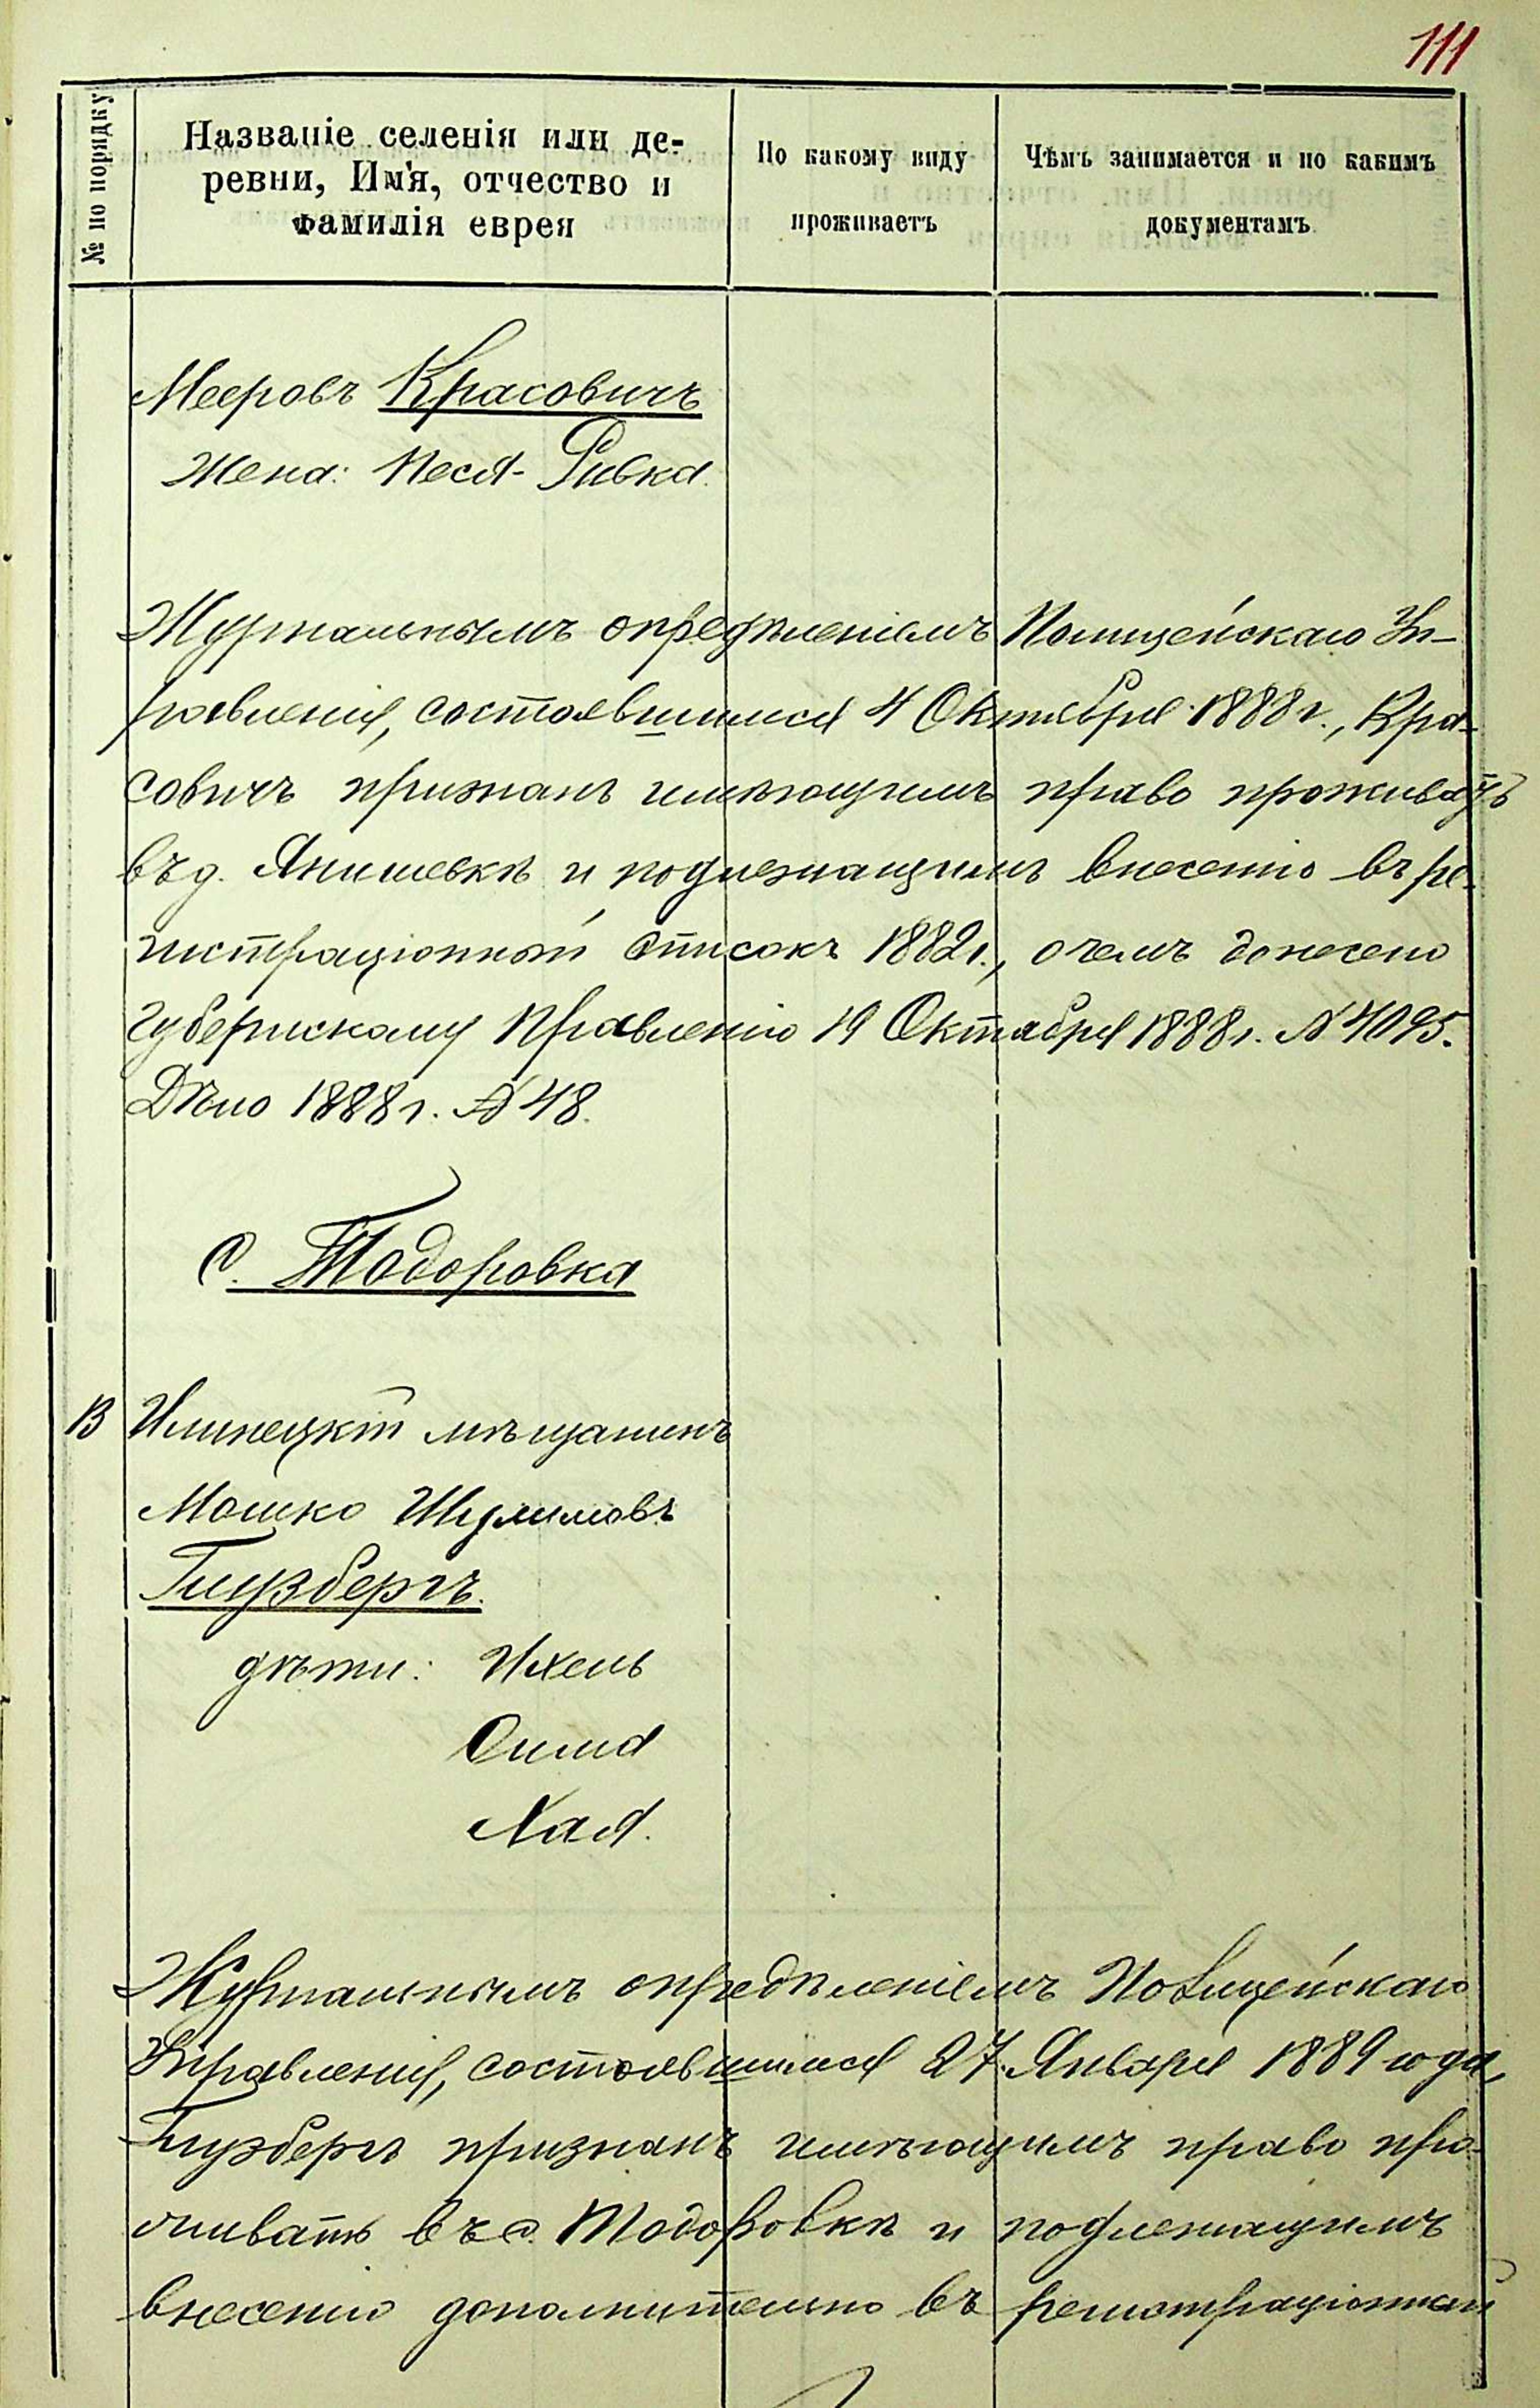 111
№ по порядку
Названіе селенія или де-
ревни, Имя, отчество и
фамилія еврея
По какому виду
проживаетъ
Чѣмъ занимается и по какимъ
документамъ
Мееровъ Красовичъ
Жена: Песя-Ривка.
Журнальнымъ опредѣленіемъ Полицейскаго Уп-
равленія, состоявшимся 4 Октября 1888 г., Кра-
совичъ признанъ имѣющимъ право проживать
въ д. Янишевкѣ и подлежащимъ внесенію въ ре-
гистраціонный списокъ 1882 г., о чемъ донесено
Губернскому Правленію 19 Октября 1888 г. № 4095.
Дѣло 1888 г. № 48.
С. Тодоровка
13 Илинецкій мѣщанинъ
Мошко Шулимовъ
Глузбергъ.
дѣти: Ихель
Сима
Хая.
Журнальнымъ опредѣленіемъ Полицейскаго
Управленія, состоявшимся 27 Января 1889 года,
Глузбергъ признанъ имѣющимъ право про-
живать въ с. Тодоровкѣ и подлежащимъ
внесенію дополнительно въ регистраціонный